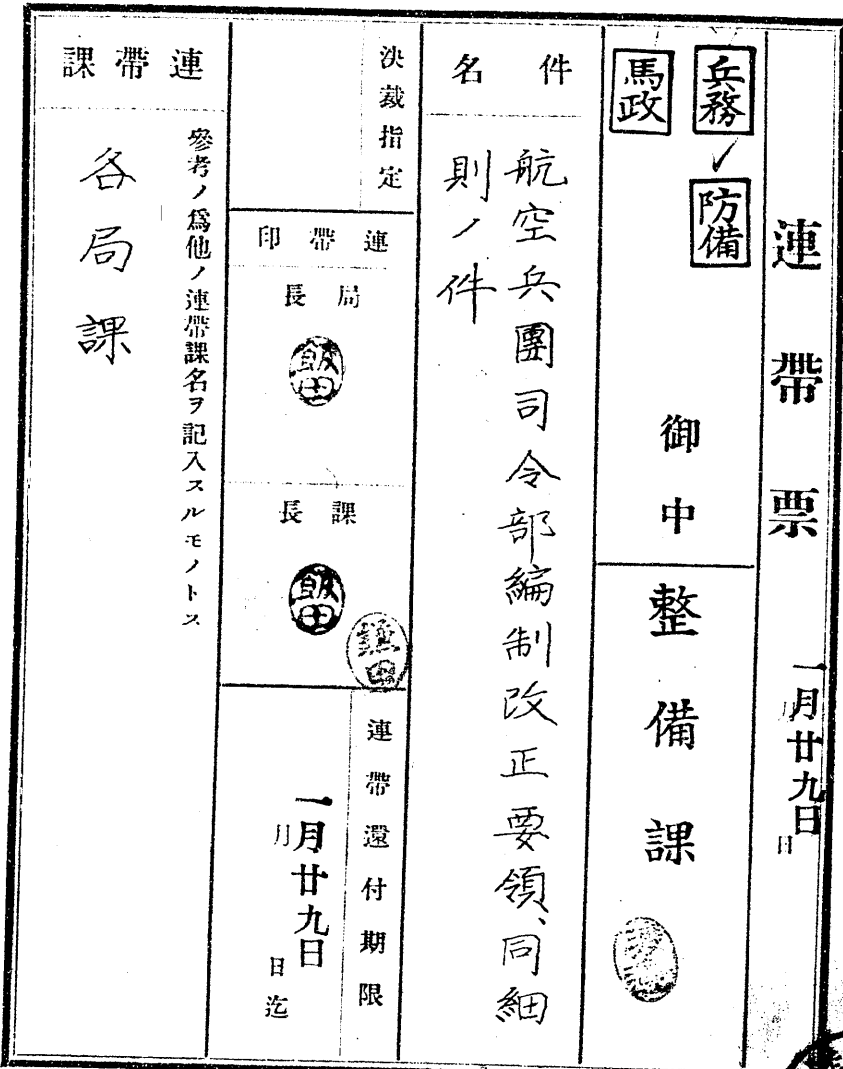 連帶票
一月廿九日
月
日
兵務
防備
馬政
御中
整備課
件名
航空兵團司令部編制改正要領、同細
則ノ件
決裁指定
連帶印
局長
飯田
課長
飯田
連帶還付期限
一月廿九日
月
日迄
連帶課
參考ノ爲他ノ連帶課名ヲ記入スルモノトス
各局課